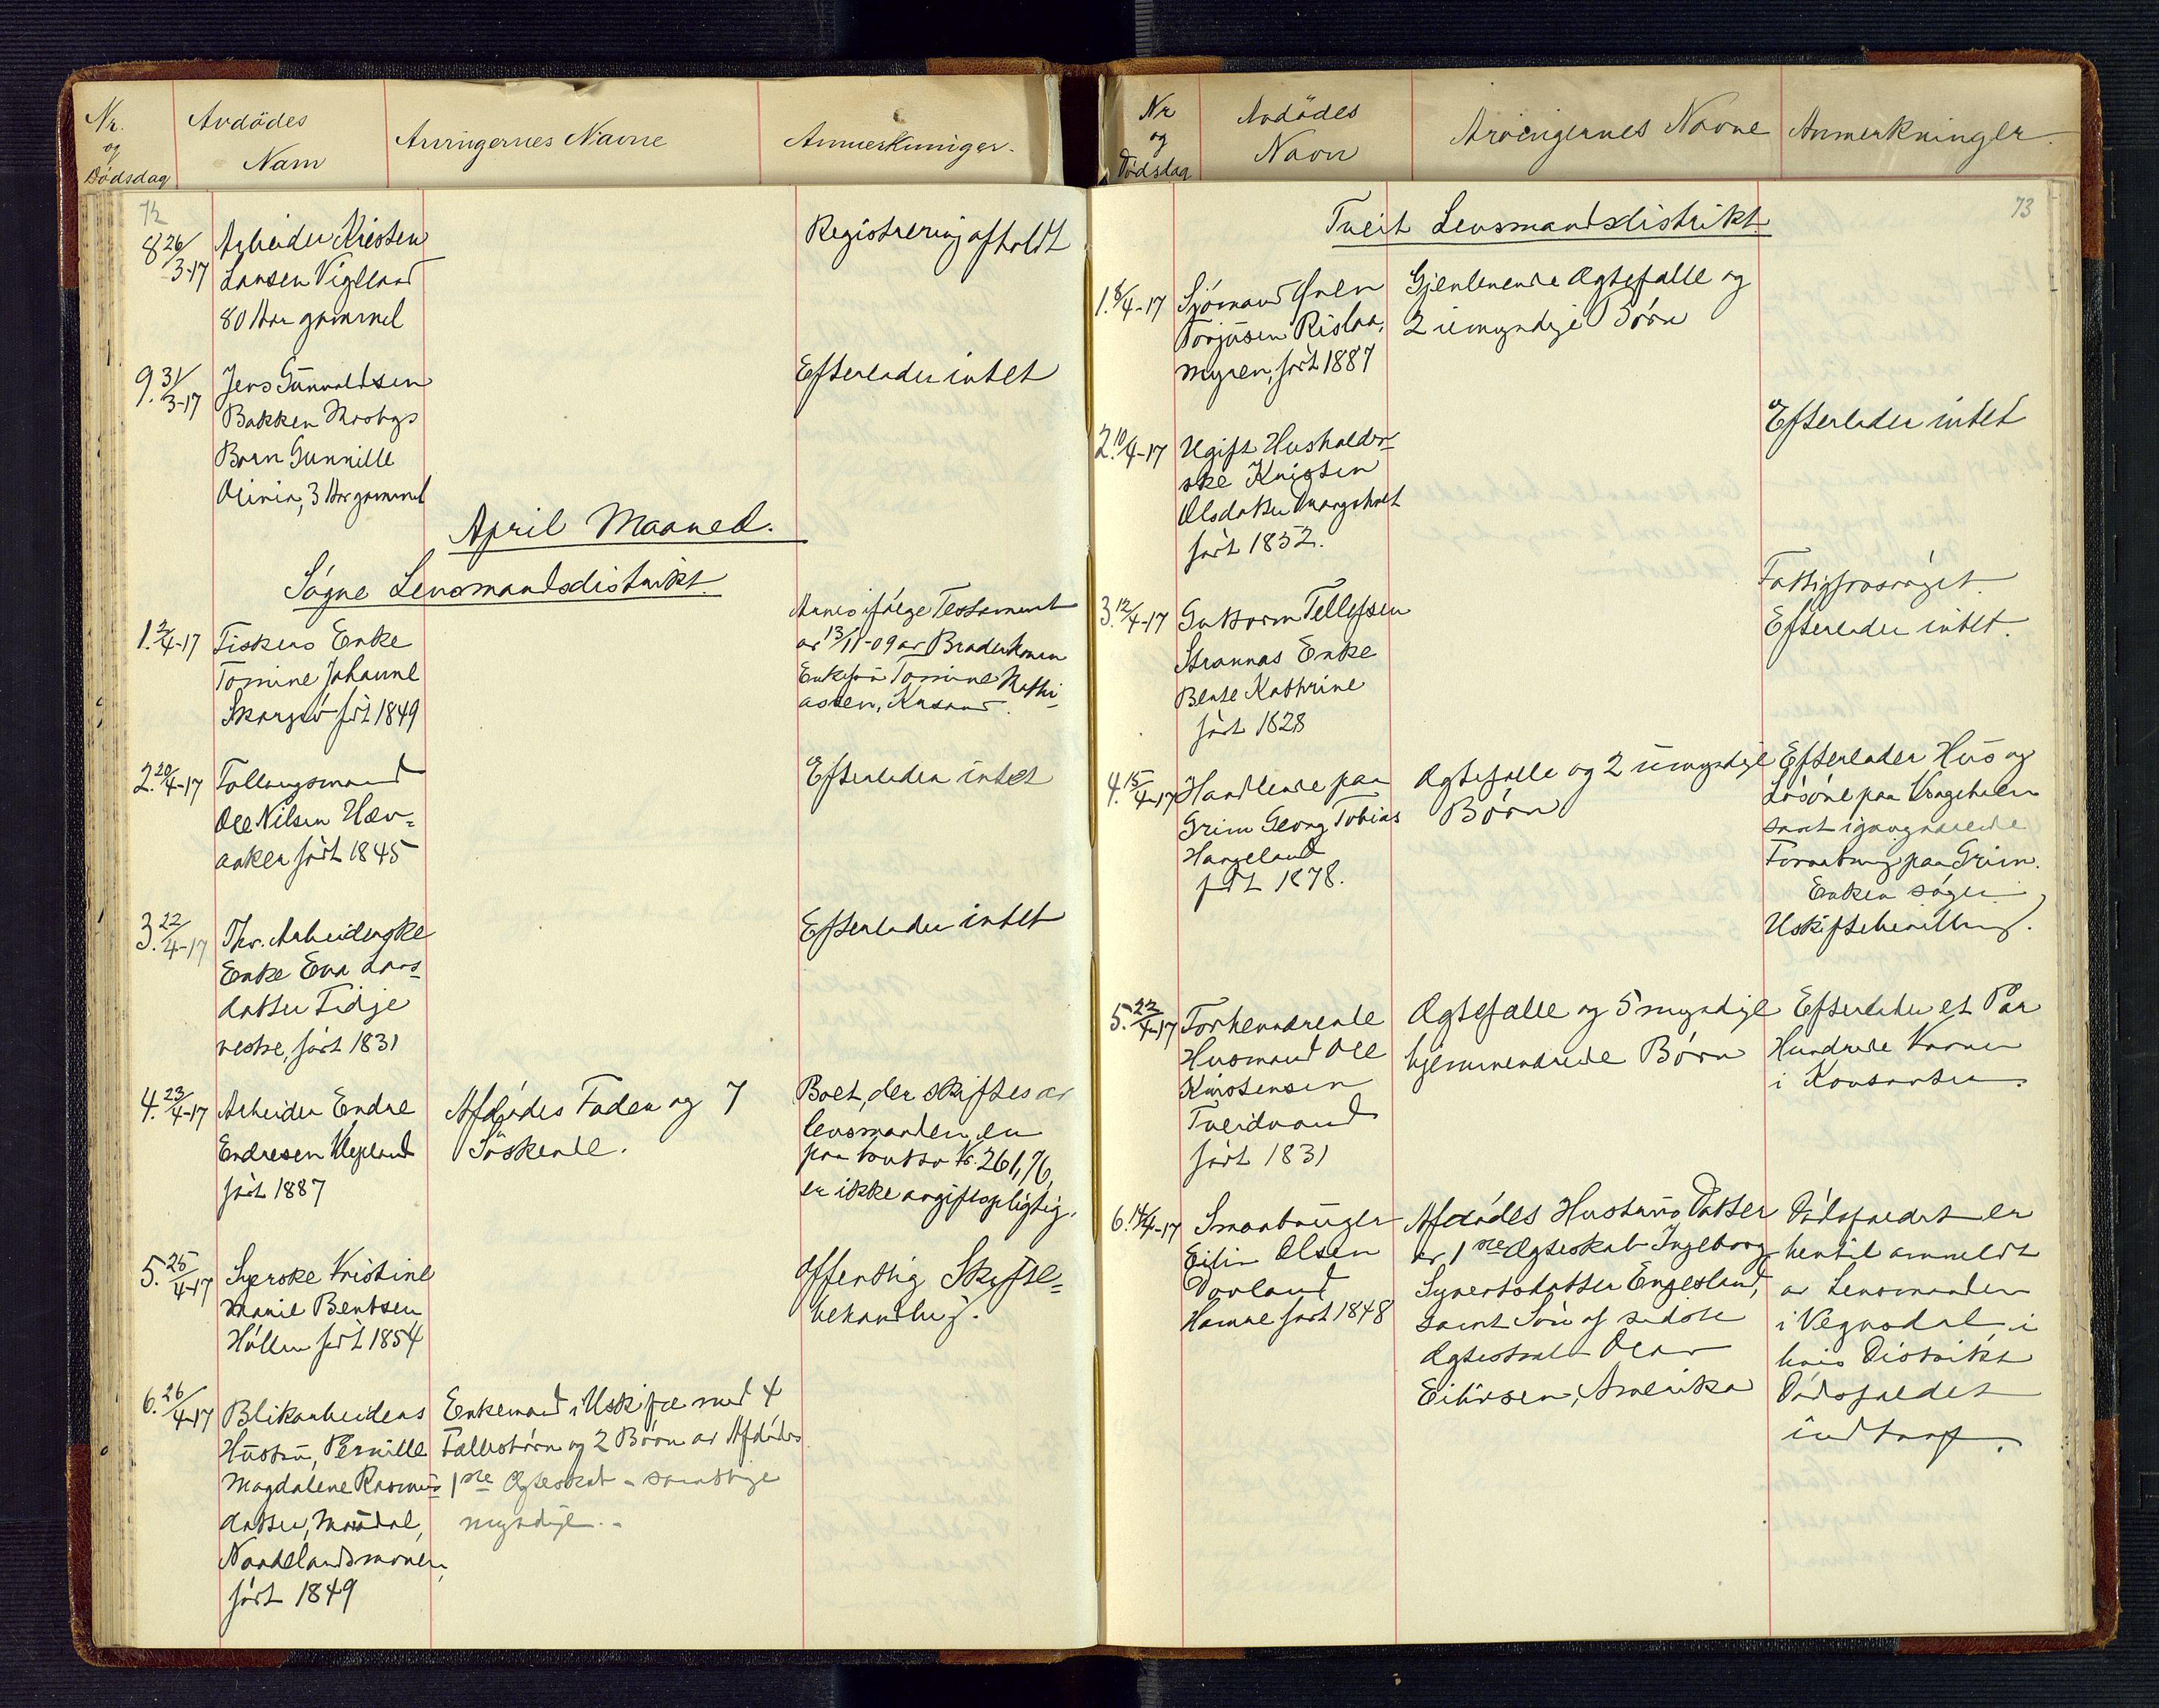 Nr.
og
Dödsdag
Avdödes
Navn
Arvingernes Navne
Anmerkninger.
72
8 26/3-17
Arbeider Kristen
Larsen Vigeland
80 Aar gammel
Registrering afholdt
9. 31/3-17
Jens Gunvaldsen
Bakken
Barn Gunnille
Olivia, 3 Aar gammel
Efterlader intet
April Maaned.
Søgne Lensmandsdistrikt.
1. 2/4-17
Fiskers Enke
Tomine Johanne
Skarpö født 1849
Arves ifølge Testament
av 13/11-09 av Broderkonen
Enkefru Tomine Mathi-
assen,
2. 20/4-17
Ole Nilsen Hæv-
aaker født 1845
Efterlader intet
3. 22/4-17
Fhv. Arbeiderske
Enke Eva Lars-
datter Tidje
vestre, født 1831
Efterlader intet
4. 23/4-17
Arbeider Endre
Endresen Repland
født 1887
Afdødes Fader og 7
Søskende.
Boet, der skiftes av
lensmanden, er
paa brutto Kr. 261,76,
er ikke avgiftspligtig.
5. 25/4-17
Syerske Kristine
Marie Bentsen
Høllen født 1854
Offentlig Skifte-
behandling.
6. 26/4-17
Blikarbeiders
Hustru, Pernille
Magdalene Rasmus-
datter, Mandal,
Nordelandsmonen,
født 1849
Enkemand i Uskifte med 4
Fællesbørn og 2 Børn av Afdødes
1ste Ægteskab - samtlige
myndige. -
Nr
og
Dödsdag
Avdödes
Navn
Arvingernes Navne
Anmerkninger.
73
Tveit Lensmandsdistrikt
1. 8/4-17
Sjømand
Torjusen Rislaa,
myren, født 1887
Gjenlevende Ægtefælle og
2 umyndige Børn
2. 10/4-17
Ugift Husholder-
ske Kristen
Olsdatter
født 1852.
Efterlader intet
3. 12/4-17
Guttorm Tellefsen
Strannas Enke
Bente Kathrine
født 1828
Fattigforsørget.
Efterlader intet.
4. 15/4-17
Handlende paa
Grim Georg Tobias
Haugeland
født 1878.
Ægtefælle og 2 umyndige
Børn
Efterlader Hus og
Løsøre paa
samt igangværende
Forretning paa Grim.
Enken søger
Uskiftebevilling.
5. 22/4-17
Forhenværende
Husmand Ole
Kristensen
Tveidvand
født 1831
Ægtefælle og 5 myndige
hjemmeværende Børn
Efterlader et Par
Hundrede Kroner
i Kontanter.
6. 14/4-17
Smaabruger
Eiliv Olsen
Dovland
Hamre født 1848
Afdødes Hustrus Datter
av 1ste Ægteskab Ingeborg
Syvertsdatter Engesland,
samt Søn af sidste
Ægteskab Olav
Eilivsen, Amerika
Dødsfaldet er
hertil anmeldt
av Lensmanden
i Vegusdal, i
hvis Distrikt
Dødsfaldet
indtraf.